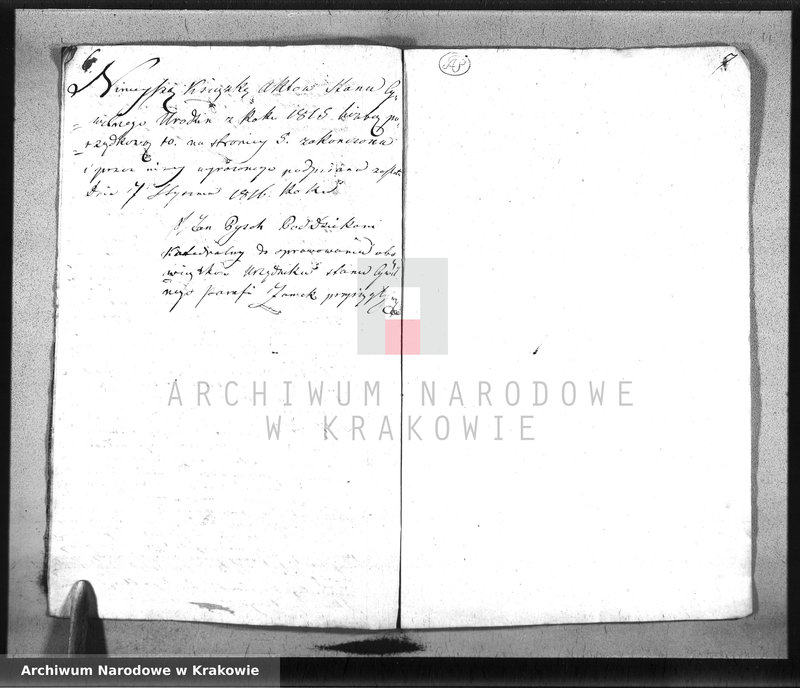 6
Ninieyszą Książkę Aktów Stanu Cy=
wilnego Urodzin z Roku 1815 liczbą po=
rządkową 10. na stronicy 5. zakończona
i przez niżey wyrażonego podpisana
Dnia 7 Stycznia 1816. Roku
X. Jan Pysoh Poddziekani
Katedralny do sprawowania obo
wiązków Urzędnika stanu Cywil
nego Parafii Zamek
7
ARCHIWUM NARODOWE
W KRAKOWIE
Archiwum Narodowe w Krakowie